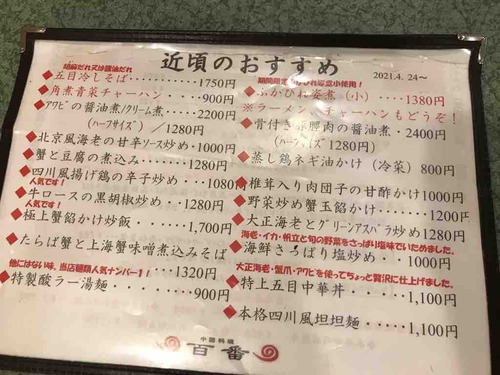 近頃のおすすめ
2021.4. 24〜
胡麻だれ又は醤油だれ
◆五目冷しそば・・・・・・・・・・1750円
◆角煮青菜チャーハン・・・・900円
◆アワビの醤油煮/クリーム煮・・・・2200円
(ハーフサイズ) /1280円
◆北京風海老の甘辛ソース炒め・1000円
◆蟹と豆腐の煮込み・・・・・1280円
◆四川風揚げ鶏の辛子炒め・・1080円
人気です!
◆牛ロースの黒胡椒炒め・・1280円
人気です!
◆極上蟹餡かけ炒飯・・・・1,700円
◆たらば蟹と上海蟹味噌煮込みそば
・・・・・1320円
他にはない味、当店麺類人気ナンバー1!!
◆特製酸ラー湯麺・・・・・900円
◆ふかひれ姿煮(小)・・・・1380円
※ラーメン、チャーハンもどうぞ!
(ハーフサイズ) 1280円
◆蒸し鶏ネギ油かけ(冷菜) 800円
◆椎茸入り肉団子の甘酢かけ1000円
◆野菜炒め蟹玉餡かけ・・・・1200円
◆大正海老とグリーンアスパラ炒め1280円
海老・イカ・帆立と旬の野菜をさっぱり塩味でいためました。
◆海鮮さっぱり塩炒め・・・・1000円
大正海老・蟹爪・アワビを使ってちょっと贅沢に仕上げました。
◆特上五目中華丼・・・・・1,100円
◆本格四川風坦坦麺・・・・1,100円
中国料理
百番